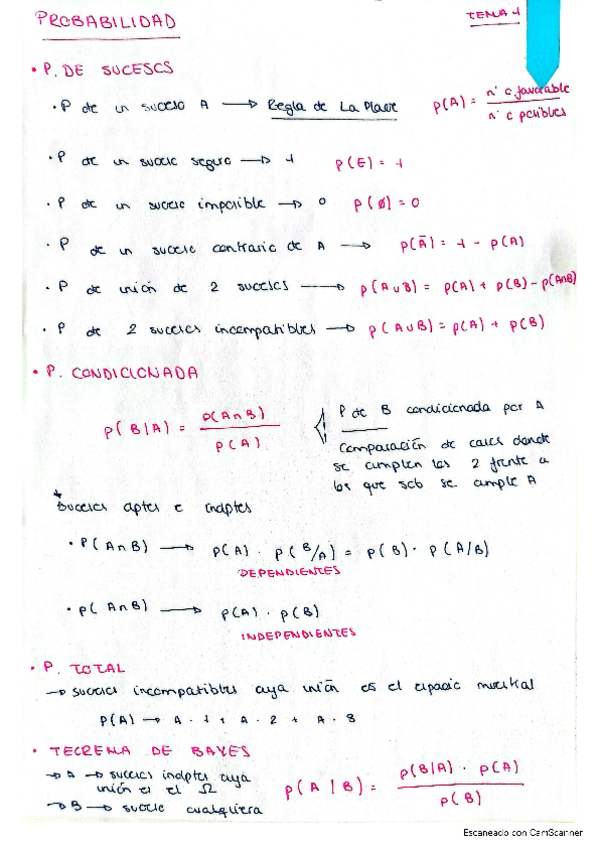 PROBABILIDAD
TEMA 4
• P. DE SUCESOS
• P de un suceso A → Regla de La Place p(A) = nº c favorable / nº c posibles
• P de un suceso seguro → 1 p(E) = 1
• P de un suceso imposible → 0 p(Ø) = 0
• P de un suceso contrario de A → p(Ā) = 1 - p(A)
• P de unión de 2 sucesos → p(A∪B) = p(A) + p(B) - p(A∩B)
• P de 2 sucesos incompatibles → p(A∪B) = p(A) + p(B)
• P. CONDICIONADA
p(B|A) = p(A∩B) / p(A)
P de B condicionada por A
Comparación de casos donde
se cumplen los 2 frente a
los que solo se cumple A
* Sucesos dptes e indptes
• P(A∩B) → p(A) · p(B/A) = p(B) · p(A/B)
DEPENDIENTES
• p(A∩B) → p(A) · p(B)
INDEPENDIENTES
• P. TOTAL
→ sucesos incompatibles cuya unión es el espacio muestral
P(A) → A · 1 + A · 2 + A · 3
• TEOREMA DE BAYES
→ A → sucesos indptes cuya
unión es el Ω
→ B → suceso cualquiera
p(A|B) = p(B|A) · p(A) / p(B)
Escaneado con CamScanner